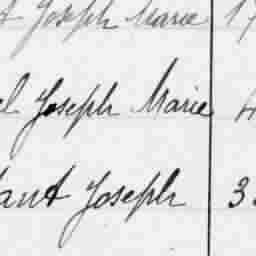 t Joseph Marie 17
el Joseph Marie 4
ant Joseph 3